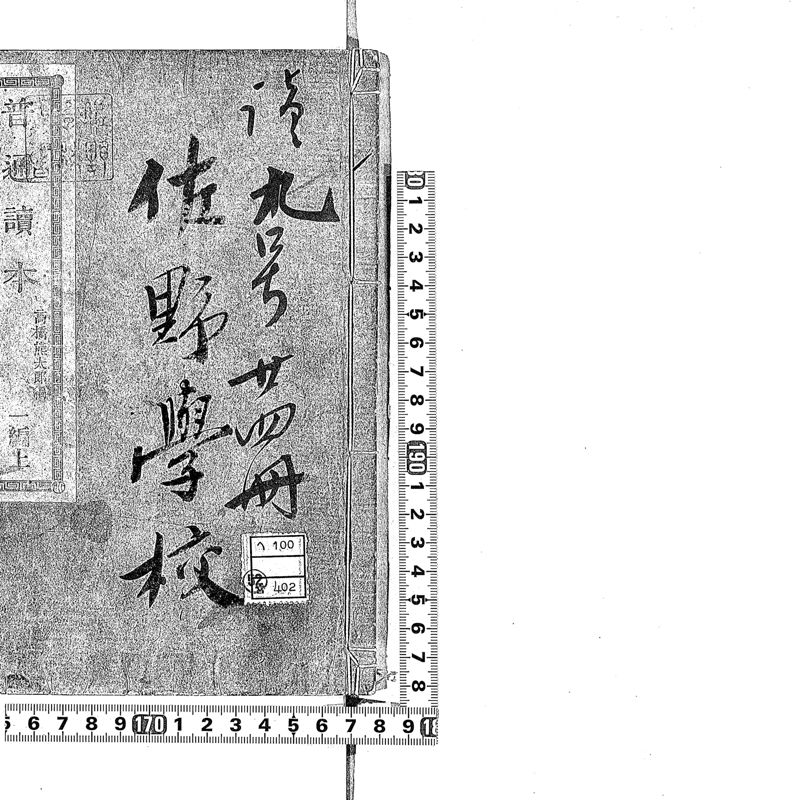 読九号
廿四冊
佐野學校
普通讀本
高橋熊太郎編
一編上
100
52
402
80 1 2 3 4 5 6 7 8 9 190 1 2 3 4 5 6 7 8
5 6 7 8 9 170 1 2 3 4 5 6 7 8 9